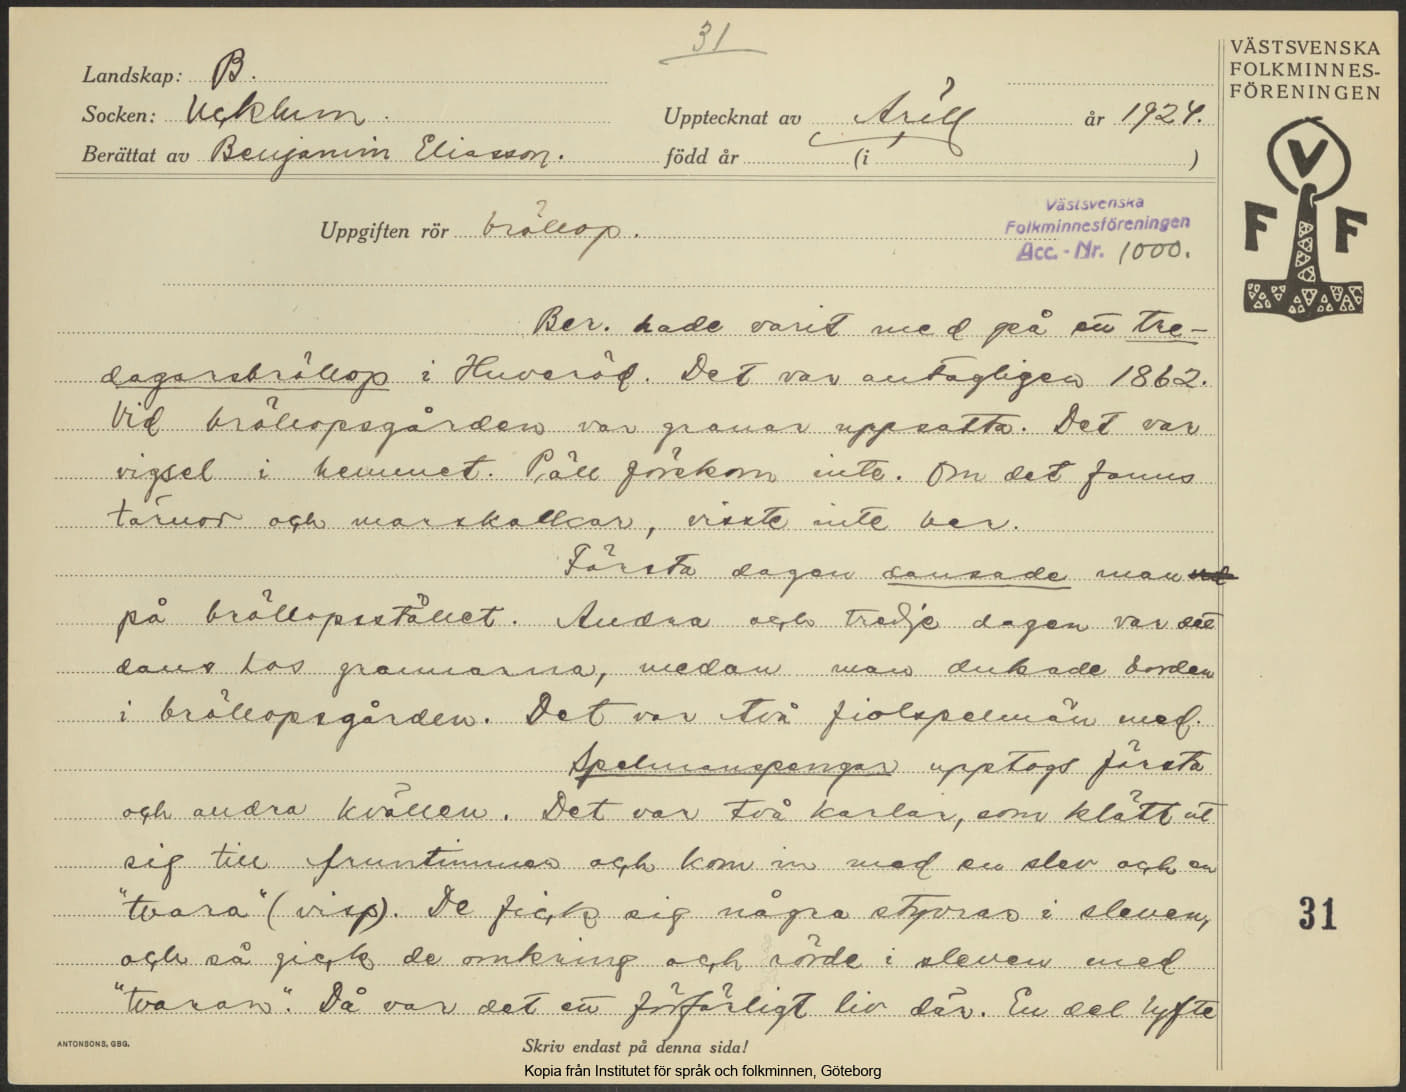 31
VÄSTSVENSKA
FOLKMINNES-
FÖRENINGEN
Landskap: B.
Socken: Ucklum. Upptecknat av Arill år 1924.
Berättat av Benjamin Eliasson. född år (i )
Uppgiften rör bröllop.
Västsvenska
Folkminnesföreningen
Acc.-Nr. 1000.
V
F F
Ber. hade varit med på ett tre-
dagarsbröllop i Huveröd. Det var antagligen 1862.
Vid bröllopsgården var granar uppsatta. Det var
vigsel i hemmet. Päll förekom inte. Om det fanns
tärnor och marskalkar, visste inte ber.
Första dagen dansade man
på bröllopsstället. Andra och tredje dagen var det
dans hos grannarna, medan man dukade borden
i bröllopsgården. Det var två fiolspelmän med.
Spelmanspengar upptogs första
och andra kvällen. Det var två karlar, som klätt ut
sig till fruntimmer och kom in med en slev och en
"tvara" (visp). De fick sig några styvrar i sleven,
och så gick de omkring och rörde i sleven med
"tvaran". Då var det ett förfärligt liv där. En del lyfte
31
ANTONSONS, GBG.
Skriv endast på denna sida!
Kopia från Institutet för språk och folkminnen, Göteborg